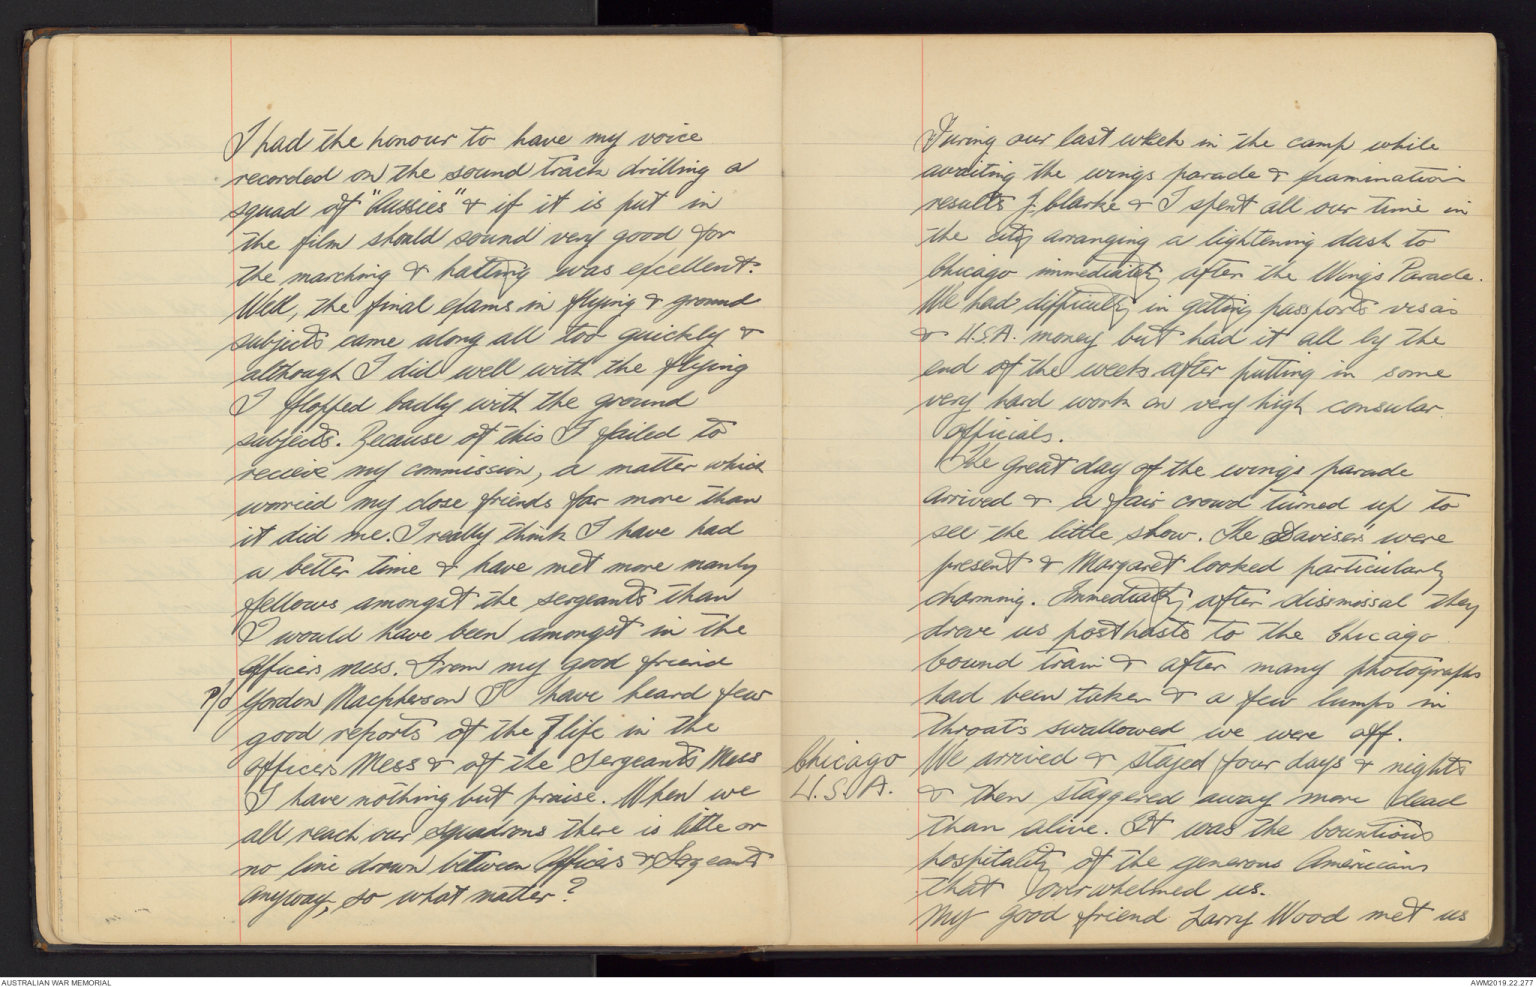 I had the honour to have my voice
recorded on the sound track drilling a
squad of "Aussies" & if it is put in
the film should sound very good for
the marching & halting was excellent.
Well, the final exams in flying & ground
subjects came along all too quickly &
although I did well with the flying
I flopped badly with the ground
subjects. Because of this I failed to
recieve my commission, a matter which
worried my close friends far more than
it did me. I really think I have had
a better time & have met more manly
fellows amongst the sergeants than
I would have been amongst in the
Officers mess. From my good friend
P/O Gordon Macpherson I have heard few
good reports of the life in the
Officers Mess & of the Sergeants Mess
I have nothing but praise. When we
all reach our squadrons there is little or
no line drawn between Officers & Sergeants
anyway, so what matter?
During our last week in the camp while
awaiting the wings parade & examination
results J. Clarke & I spent all our time in
the city arranging a lightening dash to
Chicago immediately after the Wings Parade.
We had difficulty in getting passports visas
& U.S.A. money but had it all by the
end of the week after putting in some
very hard work on very high consular
officials.
The great day of the wings parade
arrived & a fair crowd turned up to
see the little show. The Davises were
present & Margaret looked particularly
charming. Immediately after dismissal they
drove us posthaste to the Chicago
bound train & after many photographs
had been taken & a few lumps in
throats swallowed we were off.
Chicago
U.S.A.
We arrived & stayed four days & nights
& then staggered away more dead
than alive. It was the bountious
hospitality of the generous Americans
that overwhelmed us.
My good friend Larry Wood met us
AUSTRALIAN WAR MEMORIAL
AWM2019.22.277